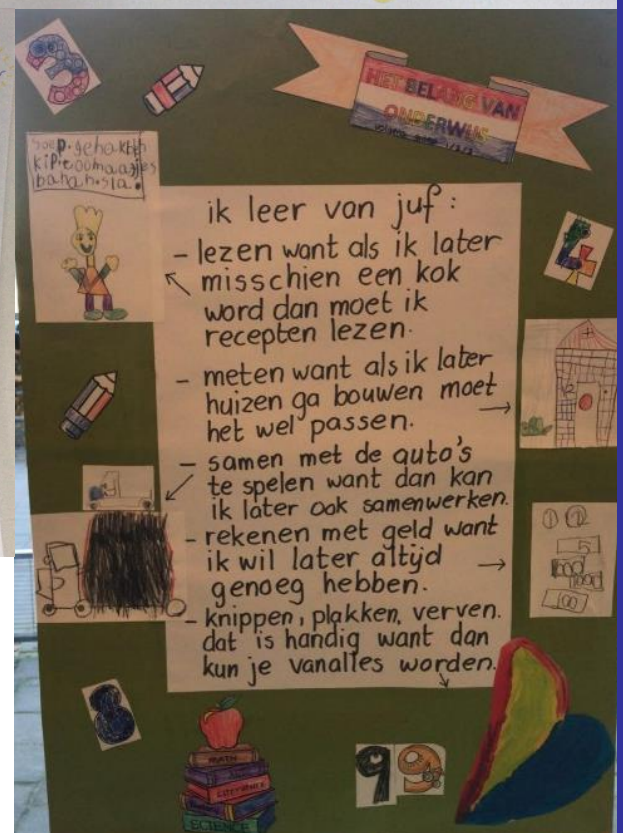 HET BELANG VAN
ONDERWIJS
soep.gehakten
kip.
banah.sla.
ik leer van juf:
- lezen want als ik later
misschien een kok
word dan moet ik
recepten lezen.
- meten want als ik later
huizen ga bouwen moet
het wel passen.
- samen met de auto's
te spelen want dan kan
ik later ook samenwerken.
- rekenen met geld want
ik wil later altijd
genoeg hebben.
- knippen, plakken, verven.
dat is handig want dan
kun je vanalles worden.
3
4
5
100
8
9 9
MATH
LITERATURE
SCIENCE